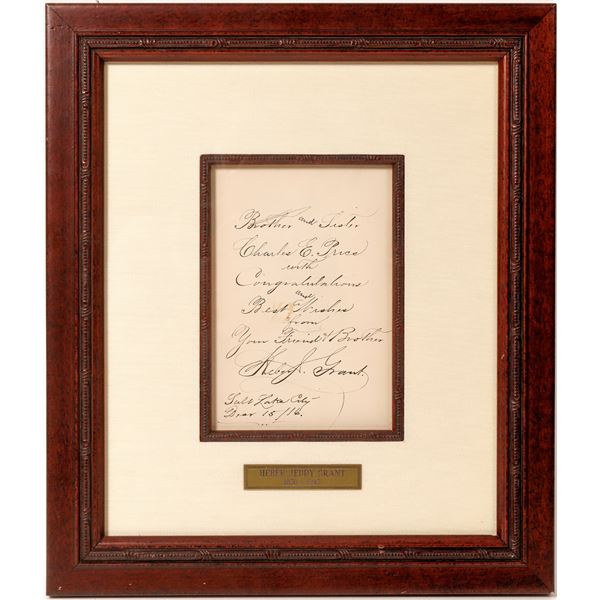 Brother and Sister
Charles E. Price
with
Congratulations
and
Best Wishes
from
Your Friend & Brother
Heber J. Grant
Salt Lake City
15/16.
HEBER JEDDY GRANT